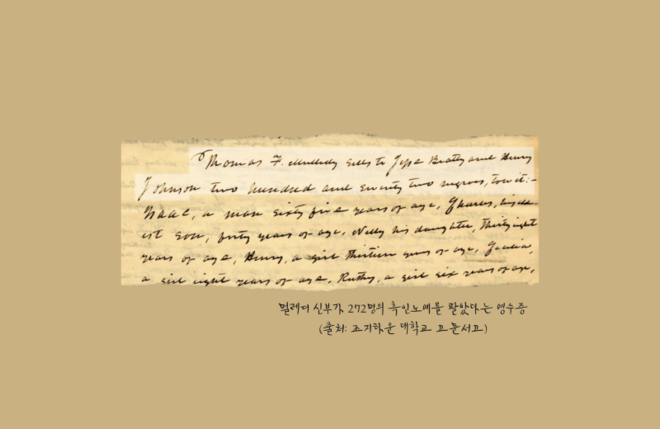 Thomas F. Mulledy sells to Jesse Beatty and Henry
Johnson two hundred and seventy two negroes, to wit:-
Isaac, a man sixty five years of age, Charles, his eld-
est son, forty years of age, Nelly his daughter, thirty eight
years of age, Henny, a girl thirteen years of age, Cecilia,
a girl eight years of age, Ruthy, a girl six years of age,
멀레디 신부가 272명의 흑인노예를 팔았다는 영수증
(출처: 조지타운 대학교 고문서고)